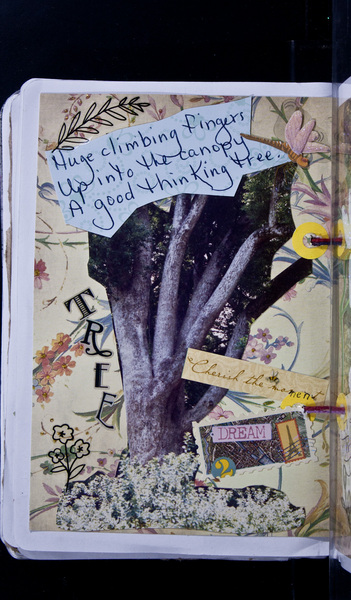 Huge climbing fingers
Up into the canopy
A good thinking tree.
TREE
Cherish the moment
DREAM
2